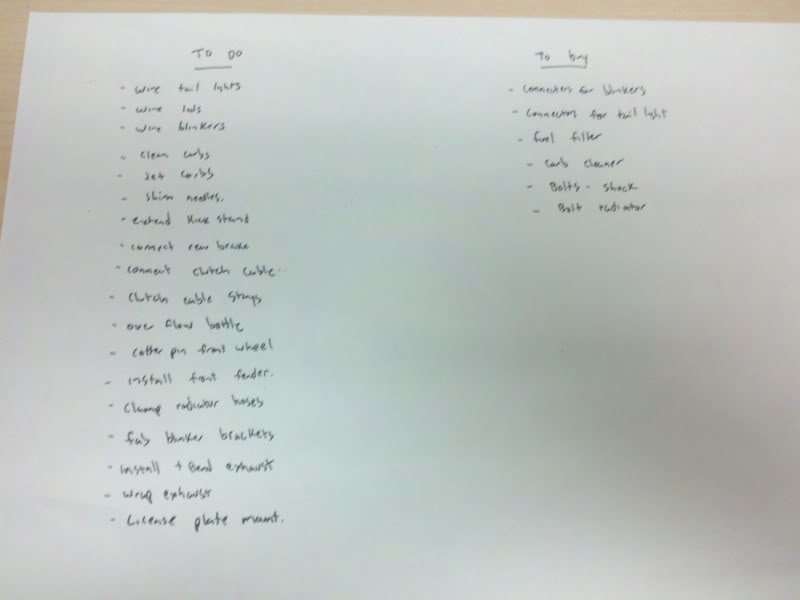 TO DO
- wire tail lights
- wire leds
- wire blinkers
- clean carbs
- Jet carbs
- shim needles.
- extend kick stand
- connect rear brake
- connect clutch cable
- clutch cable stays
- over flow bottle
- cotter pin front wheel
- install front fender.
- clamp radiator hoses
- fab blinker brackets
- install + Bend exhaust
- wrap exhaust
- License plate mount.
To buy
- connecters for blinkers
- connectors for tail light
- fuel filter
- carb cleaner
- Bolts - shock
- Bolt radiator